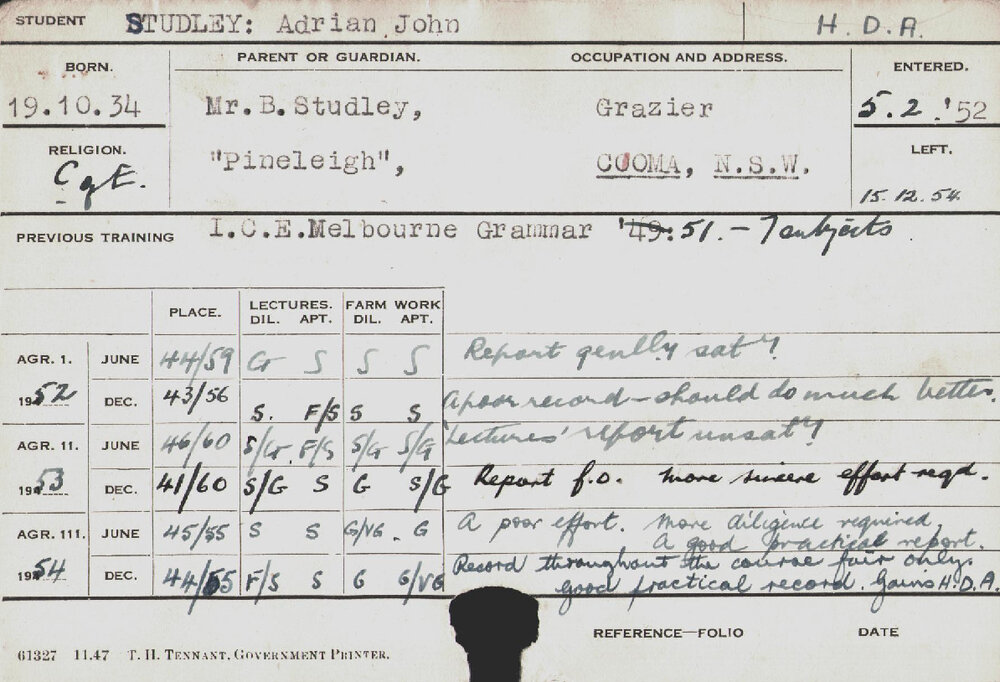 STUDENT STUDLEY: Adrian John H. D. A.
BORN. PARENT OR GUARDIAN. OCCUPATION AND ADDRESS. ENTERED.
19.10.34 Mr. B. Studley, Grazier 5. 2. '52
RELIGION. "Pineleigh", COOMA, N.S.W. LEFT.
CgE. 15. 12. 54.
PREVIOUS TRAINING I.C.E. Melbourne Grammar '49: 51. - 7 subjects
PLACE. LECTURES. FARM WORK
DIL. APT. DIL. APT.
AGR. 1. JUNE 44/59 G S S S Report gen'lly sat'y
1952 DEC. 43/56 S. F/S S S A poor record - should do much better.
AGR. 11. JUNE 46/60 S/G. F/S S/G S/G 'Lectures' report unsat'y
1953 DEC. 41/60 S/G S G S/G Report f.o. more sincere effort reqd.
AGR. 111. JUNE 45/55 S S G/VG. G A poor effort. More diligence required.
A good practical report.
1954 DEC. 44/55 F/S S G G/VG Record throughout the course fair only.
Good practical record. Gains H.D.A.
REFERENCE—FOLIO DATE
61327 11.47 T. H. TENNANT, GOVERNMENT PRINTER.